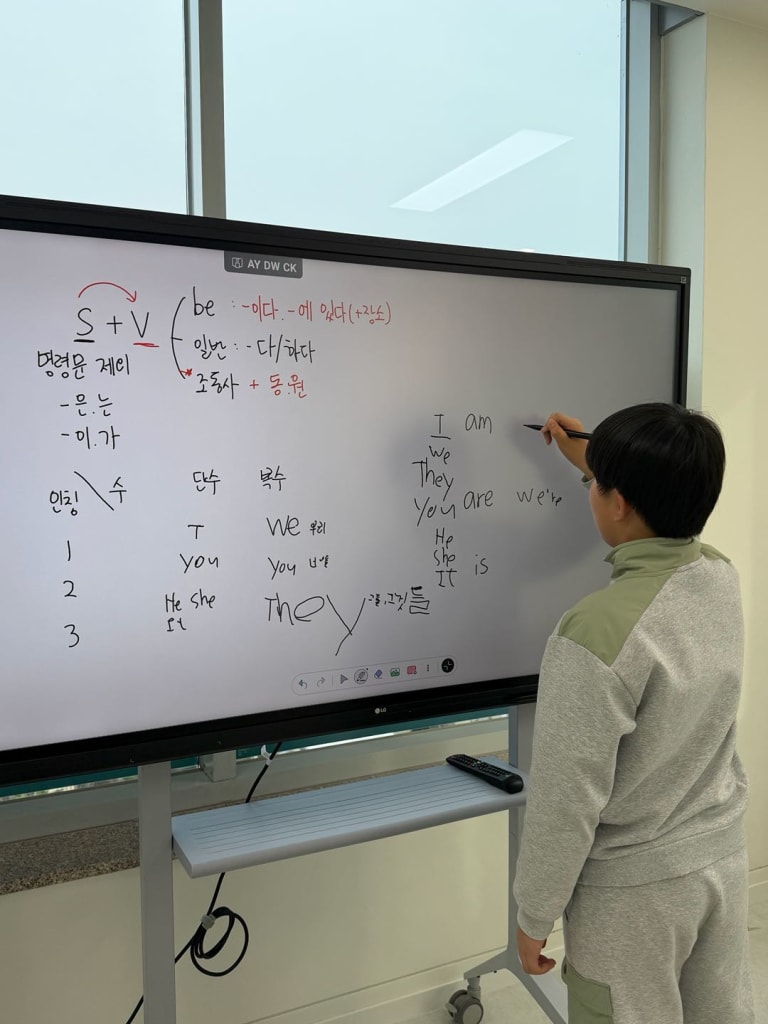 AY DW CK
be : -이다. -에 있다(+장소)
S + V
일반 : -다/하다
명령문 제외
조동사 + 동.원
-은.는
-이.가
I am
we
They
you are we're
He
she
It is
인칭 \ 수 단수 복수
1 I we 우리
2 you you 너희
3 He she They 그들, 그것들
It
LG